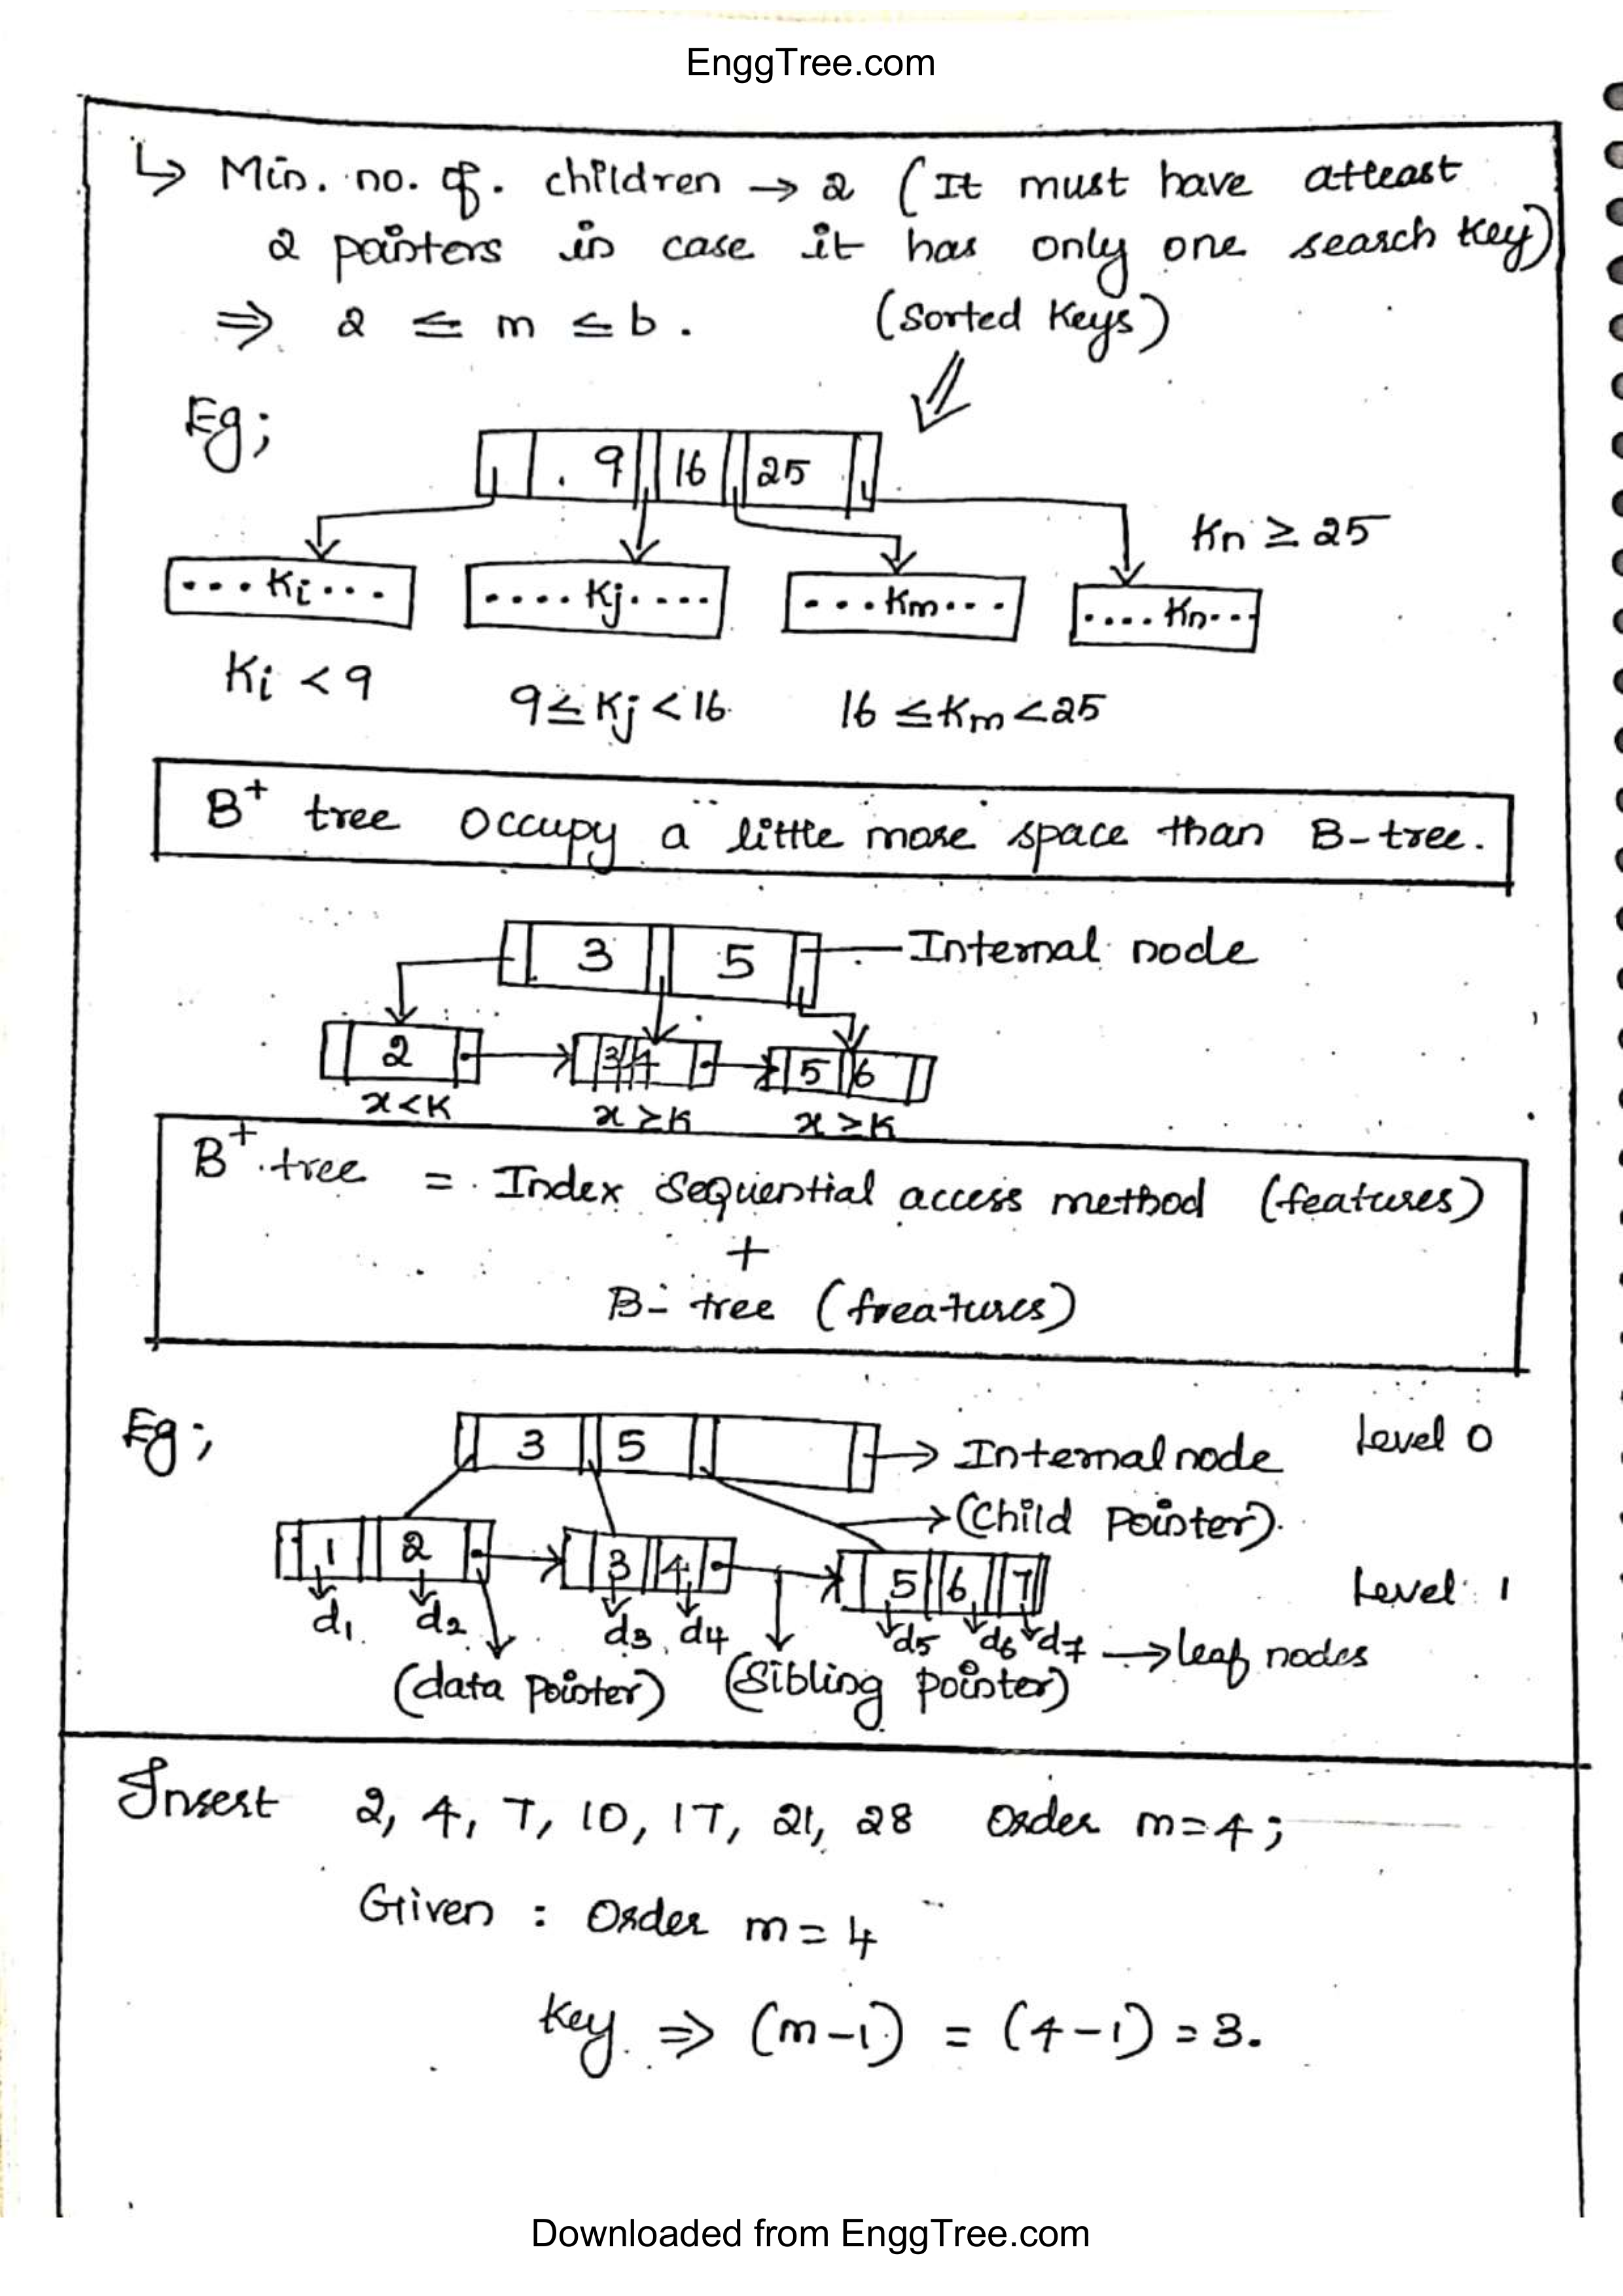 EnggTree.com
↳ Min. no. of. children → 2 (It must have atleast
2 pointers in case it has only one search key)
⇒ 2 ≤ m ≤ b. (Sorted Keys)
Eg;
9 16 25
Kn ≥ 25
...Ki... ....Kj.... ...Km... ....Kn...
Ki < 9 9 ≤ Kj < 16 16 ≤ Km < 25
B+ tree occupy a little more space than B-tree.
3 5 Internal node
2 3 4 5 6
x<K x≥K x≥K
B+ tree = Index sequential access method (features)
+
B-tree (freatures)
Eg; 3 5 → Internal node Level 0
→ (Child Pointer).
1 2 3 4 5 6 7 Level 1
d1 d2 d3 d4 d5 d6 d7 → leaf nodes
(data pointer) (Sibling pointer)
Insert 2, 4, 7, 10, 17, 21, 28 Order m=4;
Given : Order m = 4
Key ⇒ (m-1) = (4-1) = 3.
Downloaded from EnggTree.com